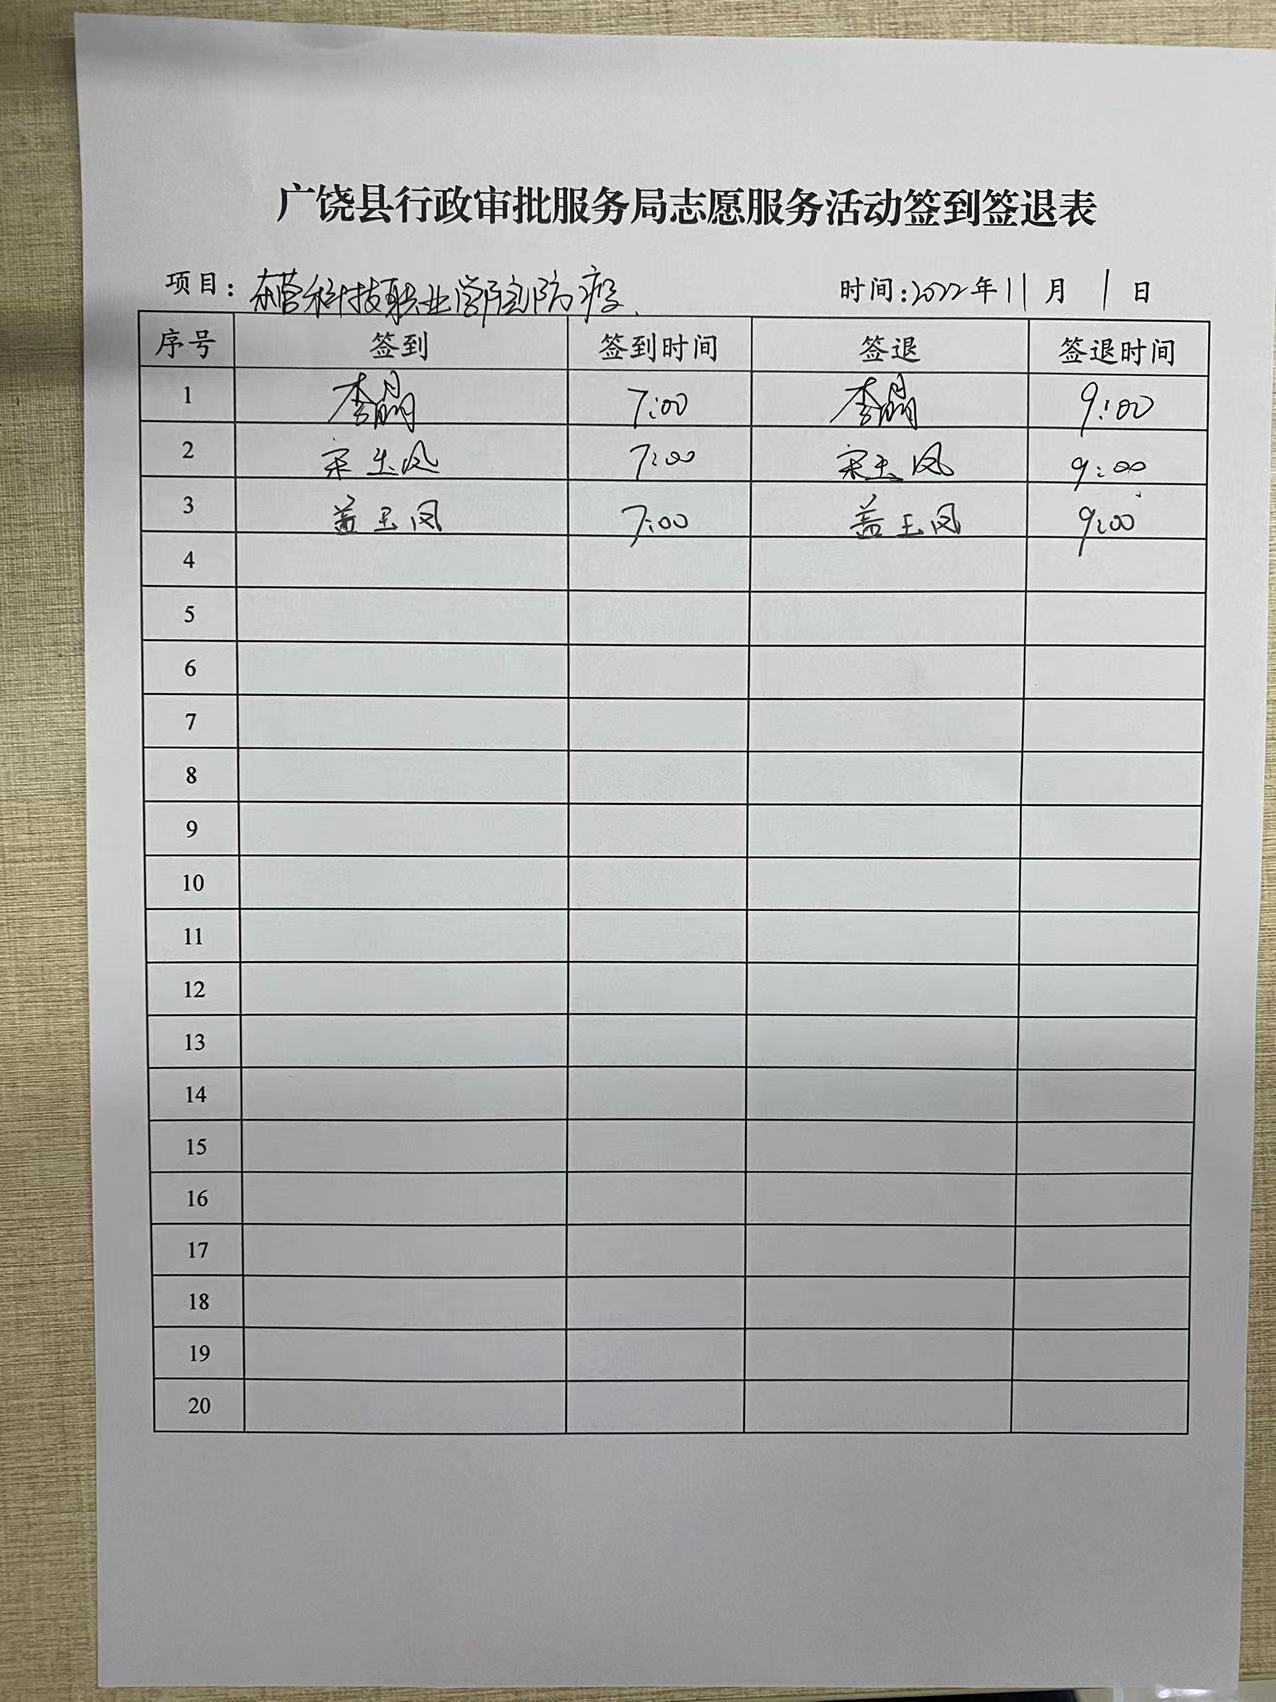 广饶县行政审批服务局志愿服务活动签到签退表
项目：东营科技职业学院防疫 时间：2022年11月1日
序号 签到 签到时间 签退 签退时间
1 李晶 7:00 李晶 9:00
2 宋玉凤 7:00 宋玉凤 9:00
3 盖玉凤 7:00 盖玉凤 9:00
4
5
6
7
8
9
10
11
12
13
14
15
16
17
18
19
20